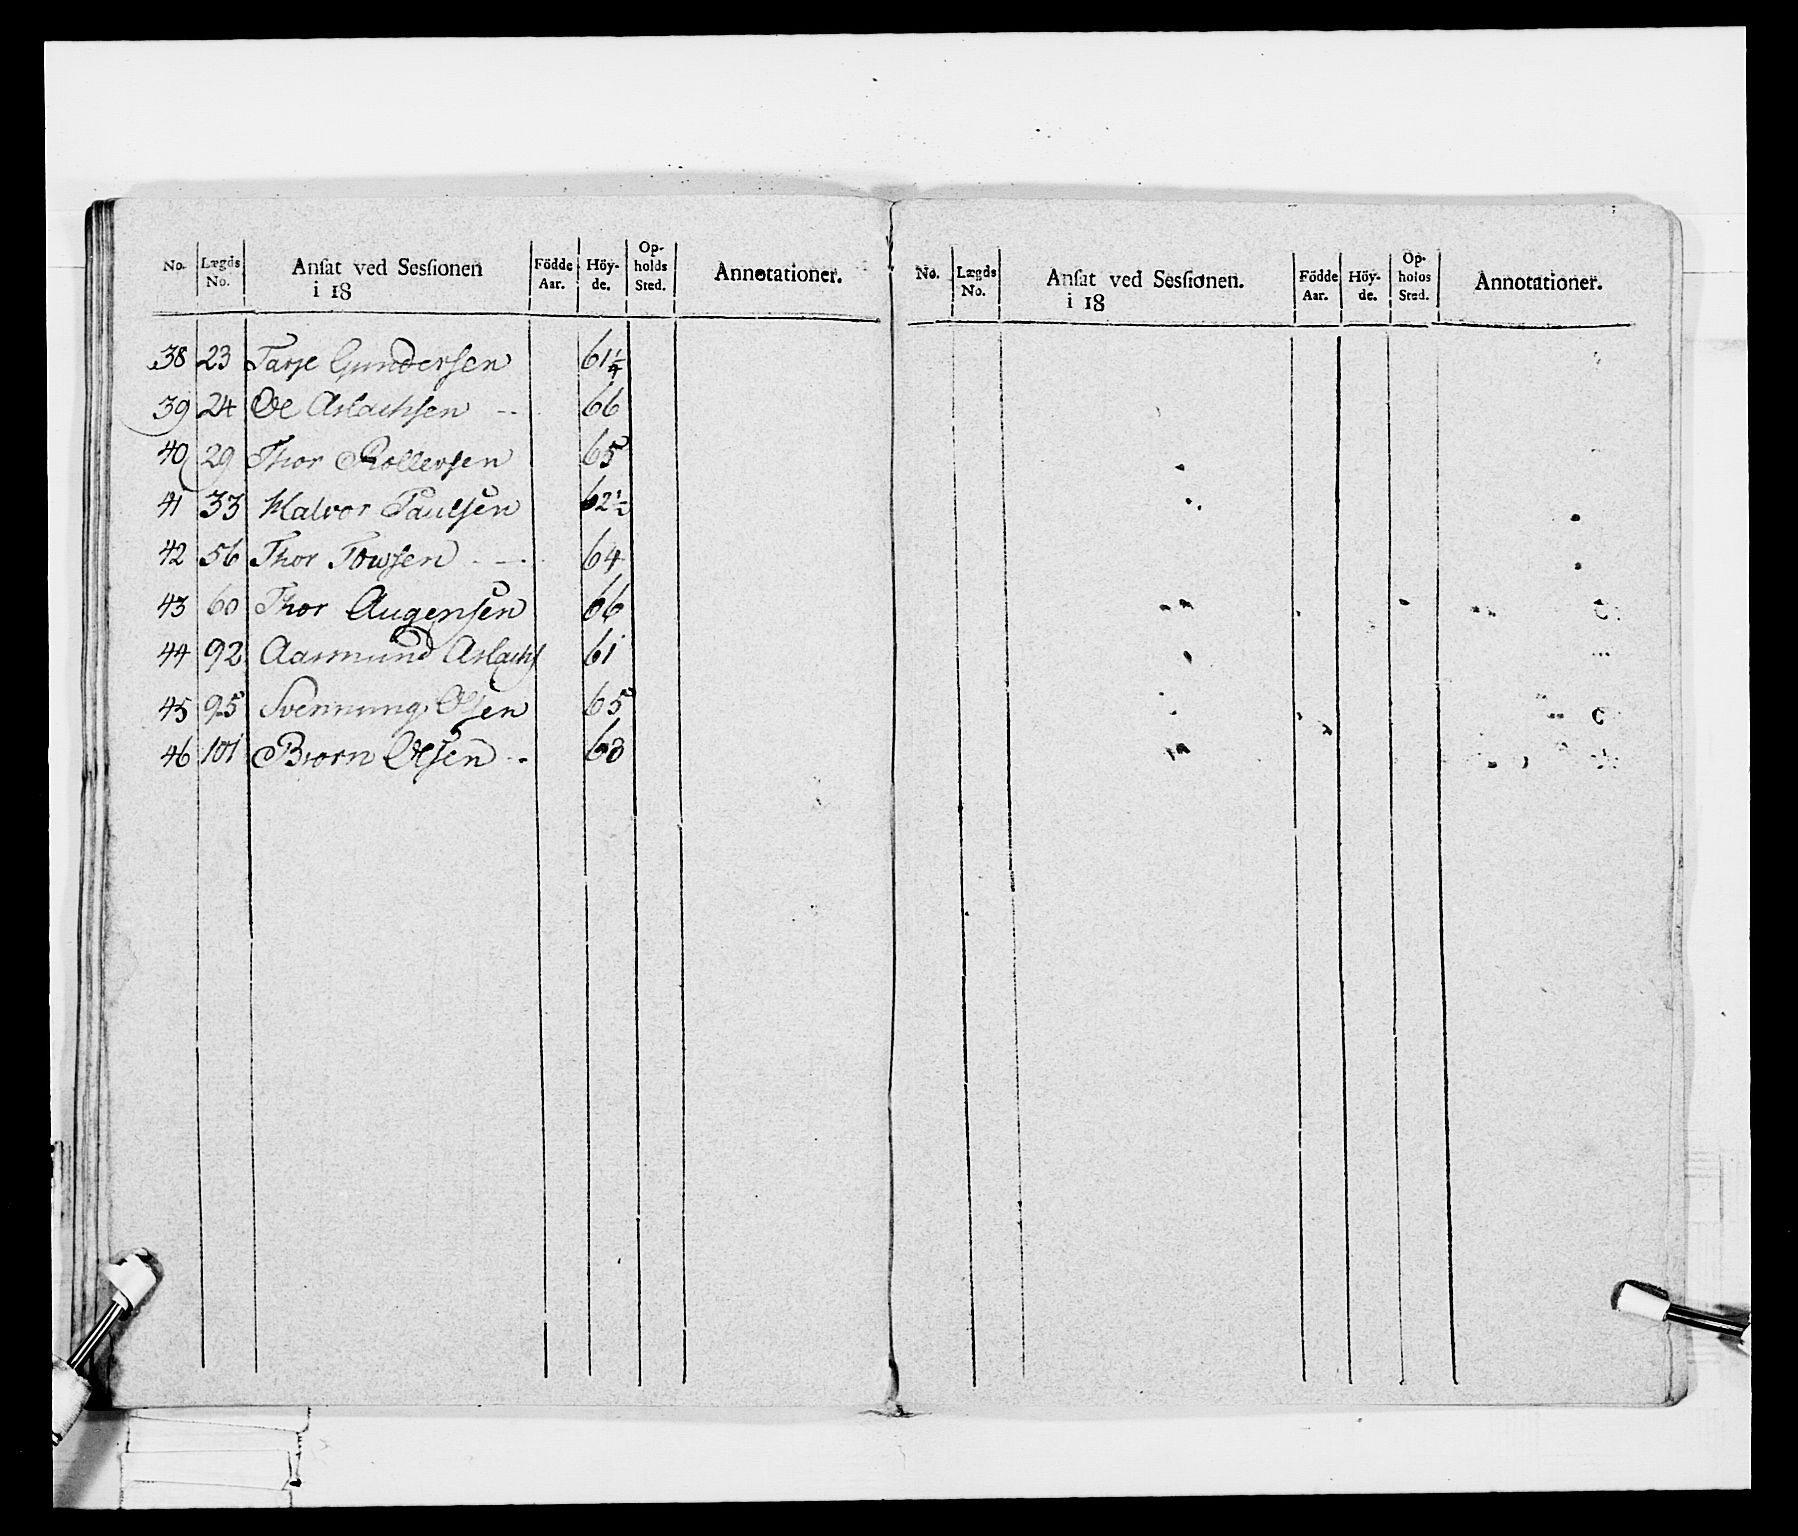 No. Lægds No. Ansat ved Sessionen i 18 Födde Aar. Höyde. Opholds Sted. Annotationer.
38 23 Tarje Gundersen 61 1/4
39 24 Ole Aslachsen - - 66
40 29 Thor Rollevsen 65
41 33 Halvor Paulsen 62 1/2
42 56 Thor Towsen - - - 64
43 60 Thor Augensen 66
44 92 Aasmund Aslachs 61
45 95 Svennung Olsen 65
46 101 Biørn Olsen - - 63
No. Lægds No. Ansat ved Sessionen. i 18 Födde Aar. Höyde. Opholds Sted. Annotationer.